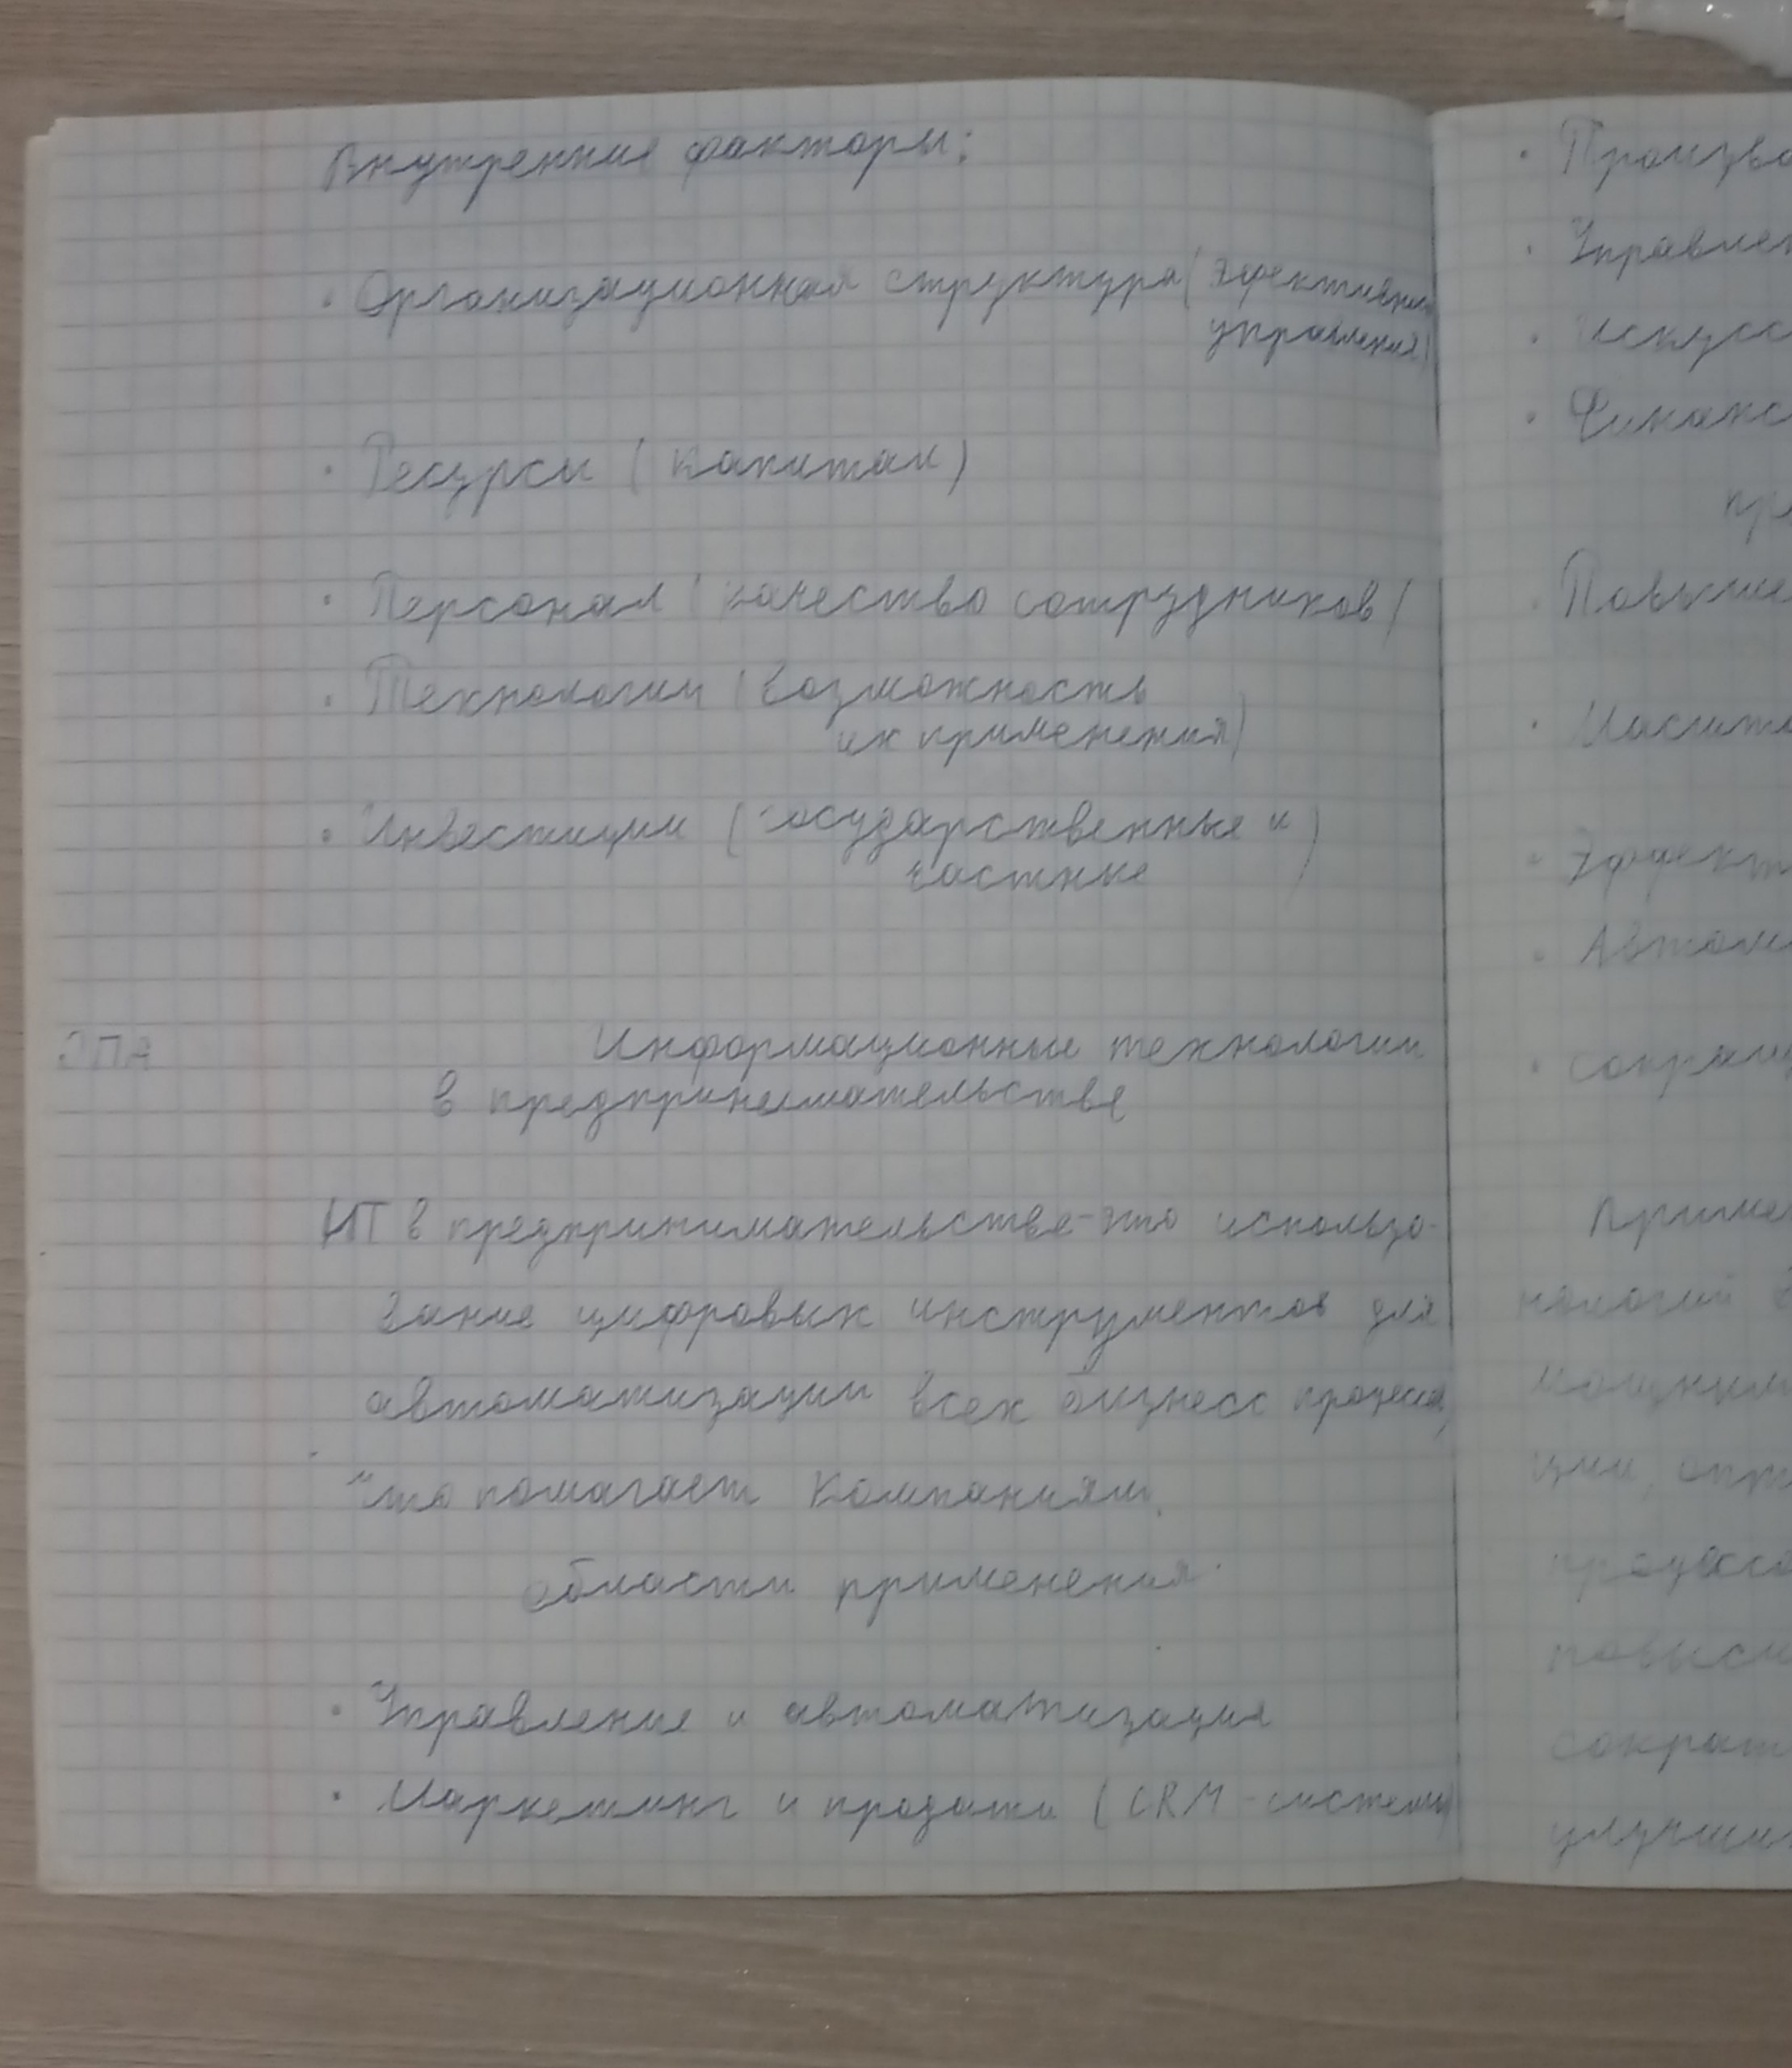 Внутренние факторы:
· Организационная структура (Эфективность
управления)
· Ресурсы (Капитал)
· Персонал (качество сотрудников)
· Технологии (Возможность
их применения)
· Инвестиции (государственные и)
частные
Информационные технологии
в предпринимательстве
ИТ в предпринимательстве-это использо-
вание цифровых инструментов для
автоматизации всех бизнесс процессов,
что помогает Компаниям.
области применения.
· Управление и автоматизация
· Маркетинг и продажи (CRM-системы)
· Произво
· Управлен
· искусс
· Финанс
пр
· Повыше
· Масшта
· Эффект
· Автом
· сокращ
Примен
нологий в
мощным
ции, опт
процессо
повыси
сократ
улучши